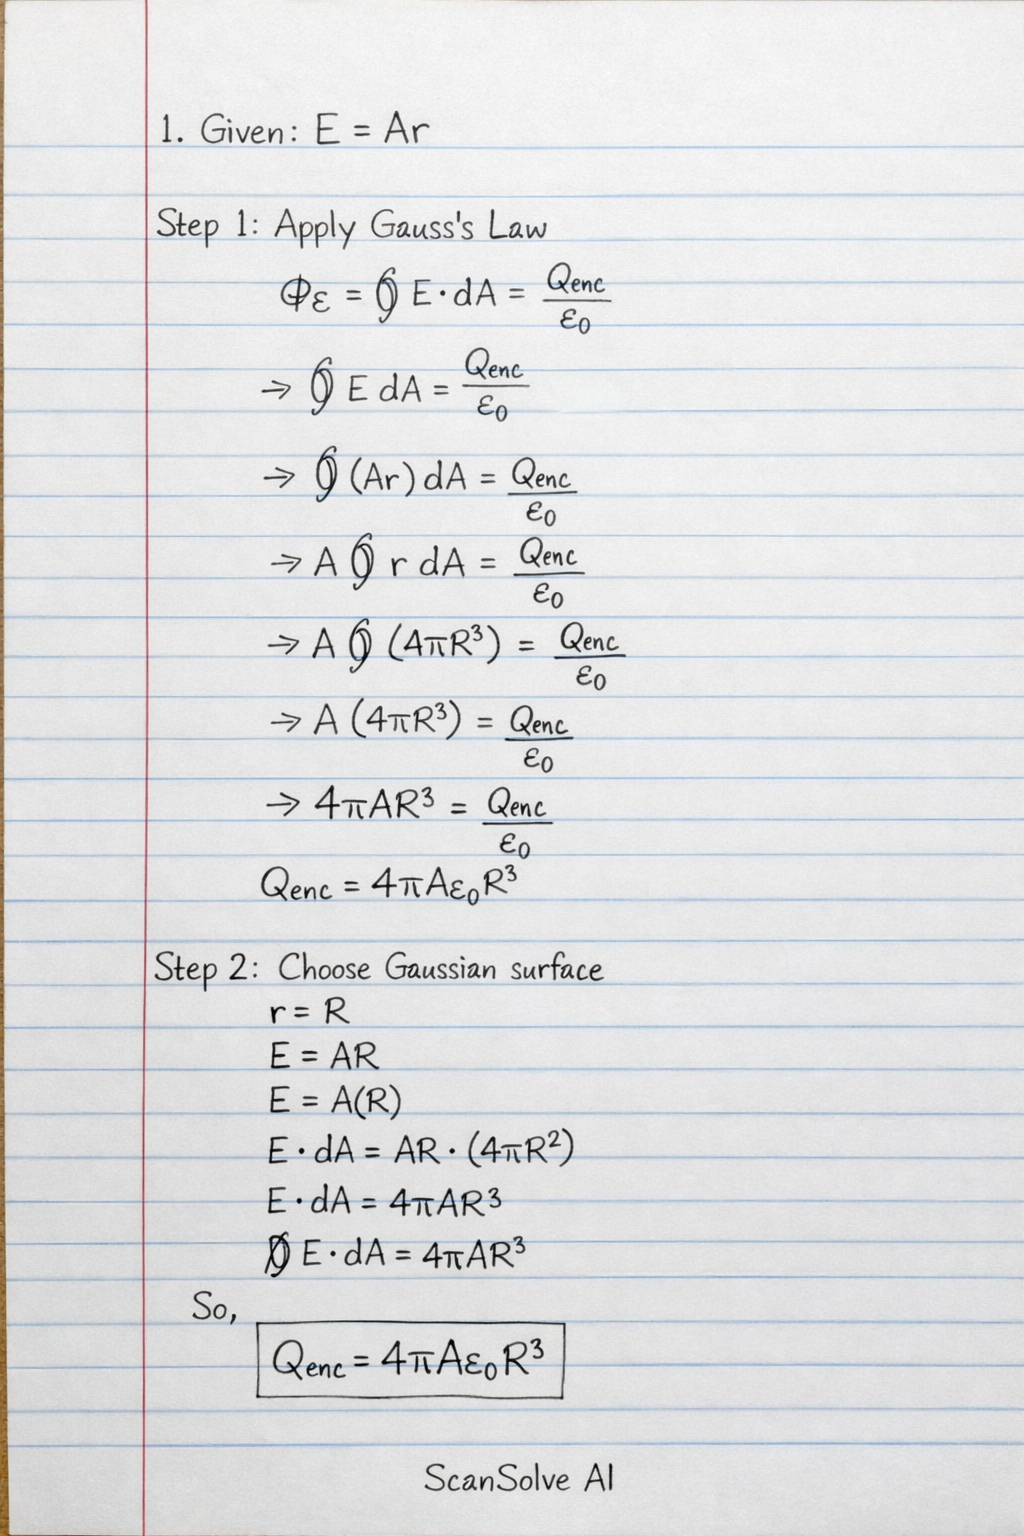 1. Given: E = Ar
Step 1: Apply Gauss's Law
Φε = ∮ E · dA = Qenc/ε0
→ ∮ E dA = Qenc/ε0
→ ∮ (Ar) dA = Qenc/ε0
→ A ∮ r dA = Qenc/ε0
→ A ∮ (4πR³) = Qenc/ε0
→ A (4πR³) = Qenc/ε0
→ 4πAR³ = Qenc/ε0
Qenc = 4πAε0R³
Step 2: Choose Gaussian surface
r = R
E = AR
E = A(R)
E · dA = AR · (4πR²)
E · dA = 4πAR³
∮ E · dA = 4πAR³
So,
Qenc = 4πAε0R³
ScanSolve AI